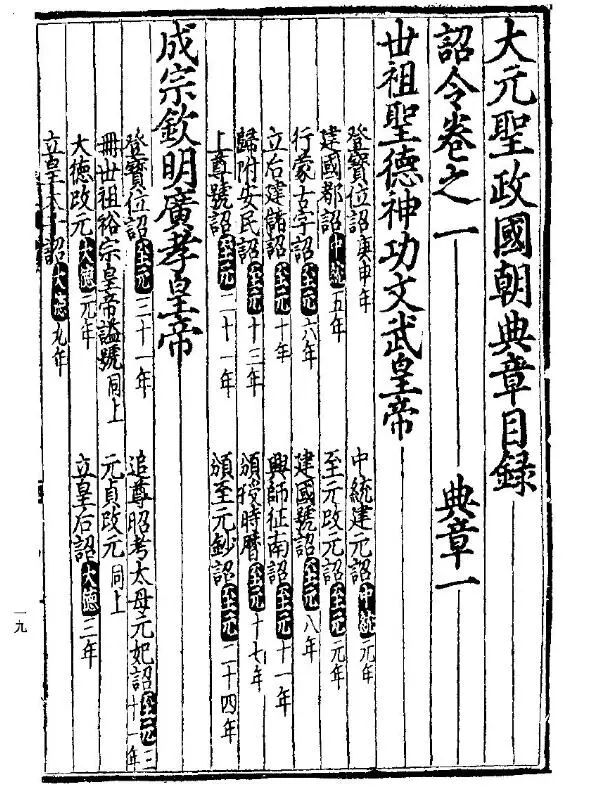 大元聖政國朝典章目録
詔令卷之一 典章一
世祖聖德神功文武皇帝
登寳位詔庚申年 中統建元詔中統元年
建國都詔中統五年 至元改元詔至元元年
行蒙古字詔至元六年 建國號詔至元八年
立后建儲詔至元十年 興師征南詔至元十一年
歸附安民詔至元十三年 頒授時曆至元十七年
上尊號詔至元二十一年 頒至元鈔詔至元二十四年
成宗欽明廣孝皇帝
登寳位詔至元三十一年 追尊昭考太母元妃詔至元三十一年
冊世祖裕宗皇帝謚號同上 元貞改元同上
大德改元大德元年 立皇后詔大德三年
立皇太子詔大德九年
一九